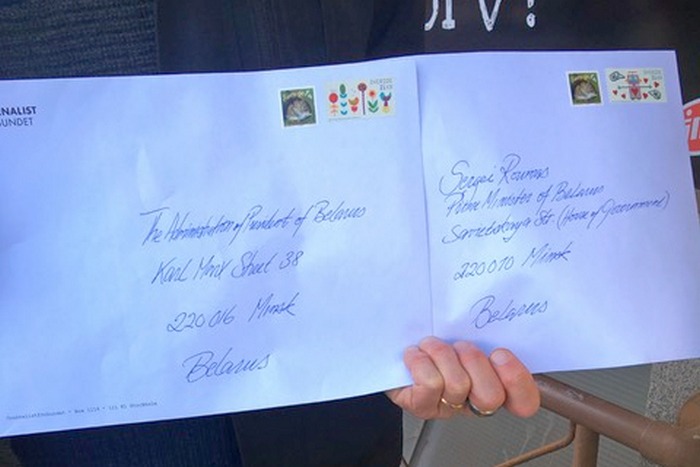 RNALIST
BUNDET
SVERIGE
The Administration of President of Belarus
Karl Marx Street 38
220 016 Minsk
Belarus
Journalistförbundet • Box 1116 • 111 81 Stockholm
Sergei Roumas
Prime Minister of Belarus
(House of Government)
220 010 Minsk
Belarus